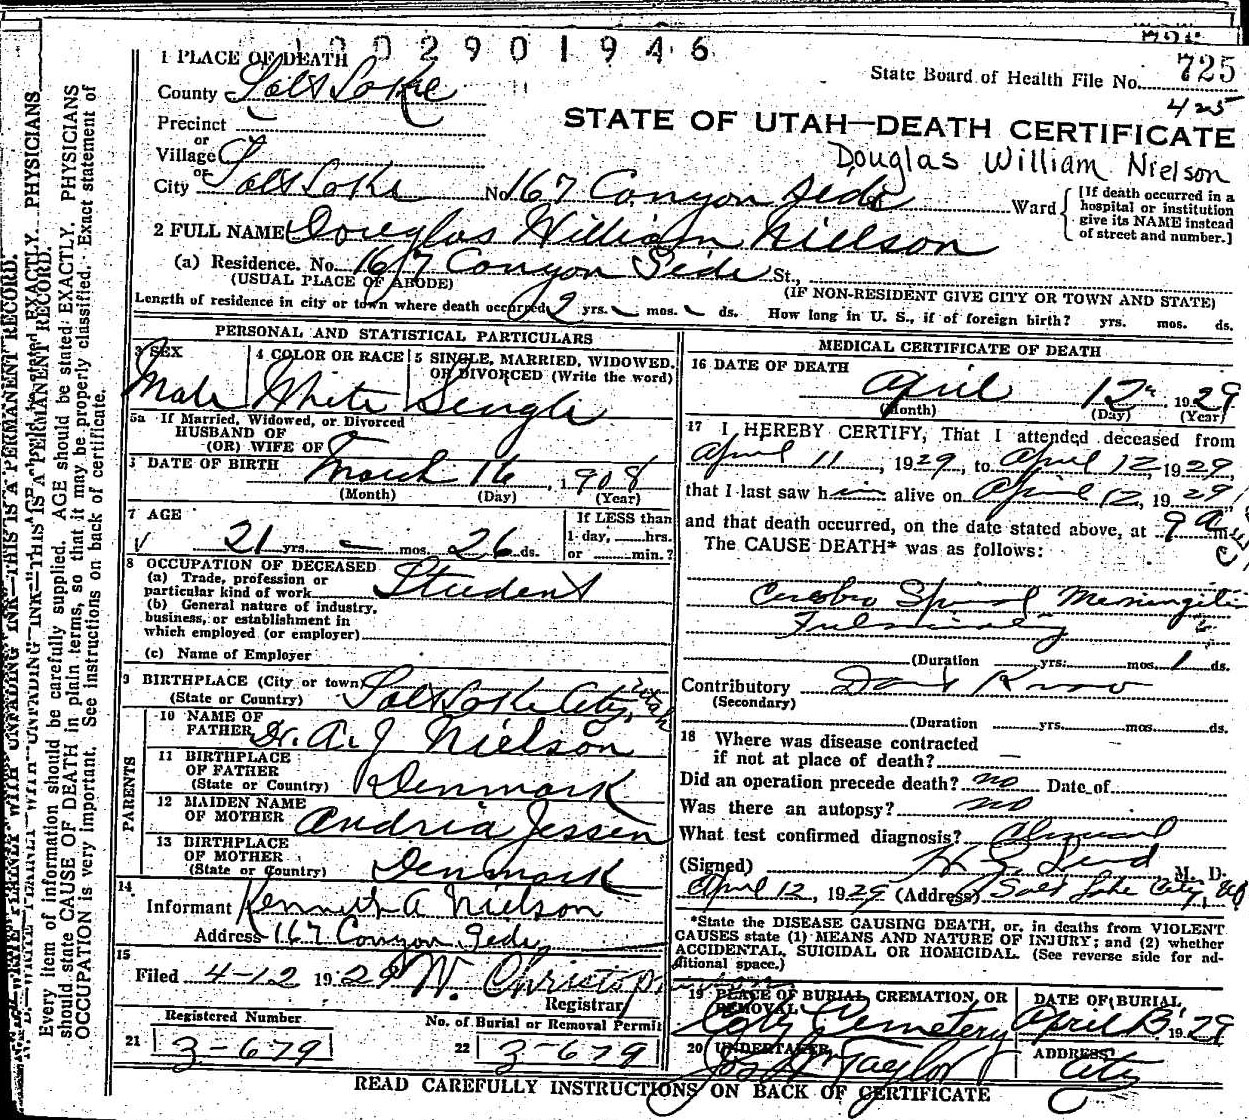 1002901946
1 PLACE OF DEATH
State Board of Health File No. 725
425
County Salt Lake
STATE OF UTAH—DEATH CERTIFICATE
Precinct
or
Village
Douglas William Nielson
or
City Salt Lake No. 167 Canyon Side Ward
[If death occurred in a
hospital or institution
give its NAME instead
of street and number.]
2 FULL NAME Douglas William Nielson
(a) Residence. No. 167 Canyon Side St.,
(USUAL PLACE OF ABODE) (IF NON-RESIDENT GIVE CITY OR TOWN AND STATE)
Length of residence in city or town where death occurred 2 yrs. – mos. – ds. How long in U. S., if of foreign birth? yrs. mos. ds.
PERSONAL AND STATISTICAL PARTICULARS
3 SEX
Male
4 COLOR OR RACE
White
5 SINGLE, MARRIED, WIDOWED,
OR DIVORCED (Write the word)
Single
5a If Married, Widowed, or Divorced
HUSBAND OF
(OR) WIFE OF
DATE OF BIRTH March 16, 1908
(Month) (Day) (Year)
7 AGE
If LESS than
21 yrs. – mos. 26 ds.
1 day, hrs.
or min.?
8 OCCUPATION OF DECEASED
(a) Trade, profession or
particular kind of work Student
(b) General nature of industry,
business, or establishment in
which employed (or employer)
(c) Name of Employer
9 BIRTHPLACE (City or town) Salt Lake City, Utah
(State or Country)
PARENTS
10 NAME OF
FATHER Dr. A. J. Nielson
11 BIRTHPLACE
OF FATHER
(State or Country) Denmark
12 MAIDEN NAME
OF MOTHER Andria Jessen
13 BIRTHPLACE
OF MOTHER
(State or Country) Denmark
14
Informant Kenneth A Nielson
Address 167 Canyon Side
15
Filed 4-12 1929 W. Christo
Registrar
Registered Number
21 3-679
No. of Burial or Removal Permit
22 3-679
MEDICAL CERTIFICATE OF DEATH
16 DATE OF DEATH
April 12, 1929
(Month) (Day) (Year)
17 I HEREBY CERTIFY, That I attended deceased from
April 11, 1929, to April 12, 1929,
that I last saw him alive on April 12, 1929,
and that death occurred, on the date stated above, at 9 a m.
The CAUSE DEATH* was as follows:
Cerebro Spinal Meningitis
(Duration yrs. mos. 1 ds.
Contributory Dont Know
(Secondary)
(Duration yrs. mos. ds.
18 Where was disease contracted
if not at place of death? —
Did an operation precede death? no Date of
Was there an autopsy? no
What test confirmed diagnosis? Clinical
(Signed) M. D.
April 12, 1929 (Address) Salt Lake City, Ut
*State the DISEASE CAUSING DEATH, or, in deaths from VIOLENT
CAUSES state (1) MEANS AND NATURE OF INJURY; and (2) whether
ACCIDENTAL, SUICIDAL OR HOMICIDAL. (See reverse side for ad-
ditional space.)
19 PLACE OF BURIAL, CREMATION, OR
REMOVAL
City Cemetery
DATE OF BURIAL
April 13, 1929
20 UNDERTAKER
Jos Taylor
ADDRESS
City
READ CAREFULLY INSTRUCTIONS ON BACK OF CERTIFICATE
Every item of information should be carefully supplied. AGE should be stated EXACTLY. PHYSICIANS
should state CAUSE OF DEATH in plain terms, so that it may be properly classified. Exact statement of
OCCUPATION is very important. See instructions on back of certificate.